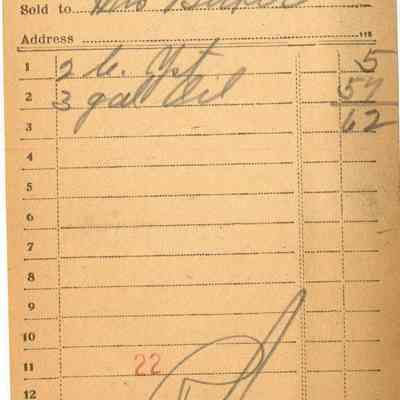 Sold to Mrs
Address 115
1 2 lb. 5
2 3 gal Oil 57
3 62
4
5
6
7
8
9
10
11 22
12